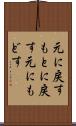 元に戻す
もとに戻
す元にも
どす